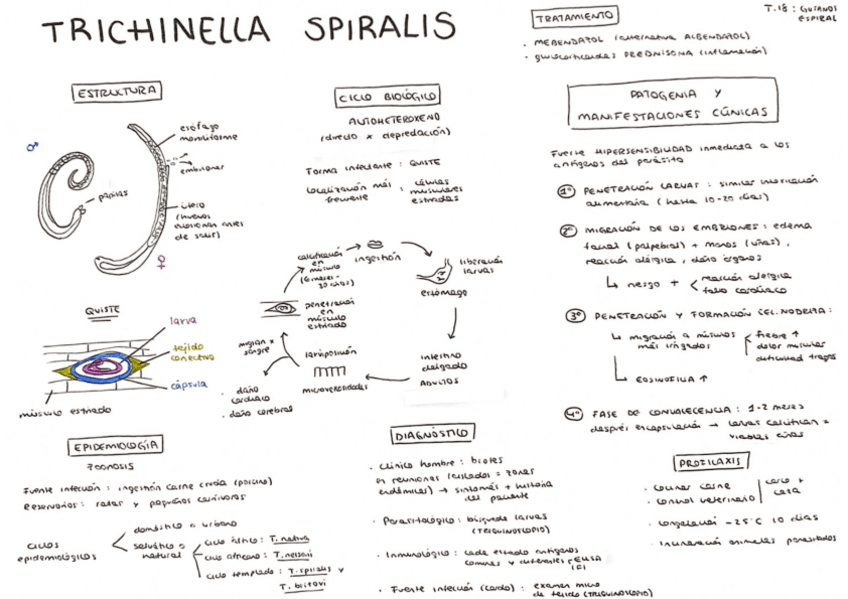 TRICHINELLA SPIRALIS
T.18: GUSANOS
ESPIRAL
TRATAMIENTO
· MEBENDAZOL (alternativa ALBENDAZOL)
· glucocorticoides PREDNISONA (inflamación)
ESTRUCTURA
♂
esófago
moniliforme
embriones
papilas
útero
(huevos
eclosionan antes
de salir)
♀
QUISTE
larva
tejido
conectivo
cápsula
músculo estriado
CICLO BIOLÓGICO
AUTOHETEROXENO
(directo x depredación)
Forma infectante: QUISTE
Localización más frecuente: células
musculares
estriadas
calcificación
en
músculo
ingestión
liberación
larvas
estómago
intestino
delgado
ADULTOS
larviposición
microvellosidades
migran x
sangre
· daño
cardíaco
· daño cerebral
penetración
en
músculo
estriado
PATOGENIA Y
MANIFESTACIONES CLÍNICAS
Fuerte HIPERSENSIBILIDAD inmediata a los
antígenos del parásito
1º PENETRACIÓN LARVAS: similar intoxicación
alimentaria (hasta 10-20 días)
2º MIGRACIÓN DE LOS EMBRIONES: edema
facial (palpebral) + manos (uñas),
reacción alérgica, daño órganos
↳ riesgo + < reacción alérgica
fallo cardíaco
3º PENETRACIÓN Y FORMACIÓN CEL. NODRIZA:
↳ migración a músculos
más irrigados
fiebre ↑
dolor muscular
dificultad tragar
↳ EOSINOFILIA ↑
4º FASE DE CONVALECENCIA: 1-2 meses
después encapsulación → larvas calcifican =
viables años
EPIDEMIOLOGÍA
ZOONOSIS
Fuente infección: ingestión carne cruda (porcino)
Reservorios: ratas y pequeños carnívoros
ciclos
epidemiológicos
doméstico o urbano
selvático o
natural
ciclo ártico: T. nativa
ciclo africano: T. nelsoni
ciclo templado: T. spiralis y
T. britovi
DIAGNÓSTICO
· Clínico hombre: brotes
en reuniones (aislados = zonas
endémicas) → síntomas + historia
del paciente
· Parasitológico: búsqueda larvas
(TRIQUINOSCOPIO)
· Inmunológico: cada estadio antígenos
comunes y diferentes ELISA
IFI
· Fuente infección (cerdo): examen micro
de tejido (TRIQUINOSCOPIO)
PROFILAXIS
· Cocinar carne
· Control veterinario
cerdo +
caza
· Congelación -25°C 10 días
· Incineración animales parasitados